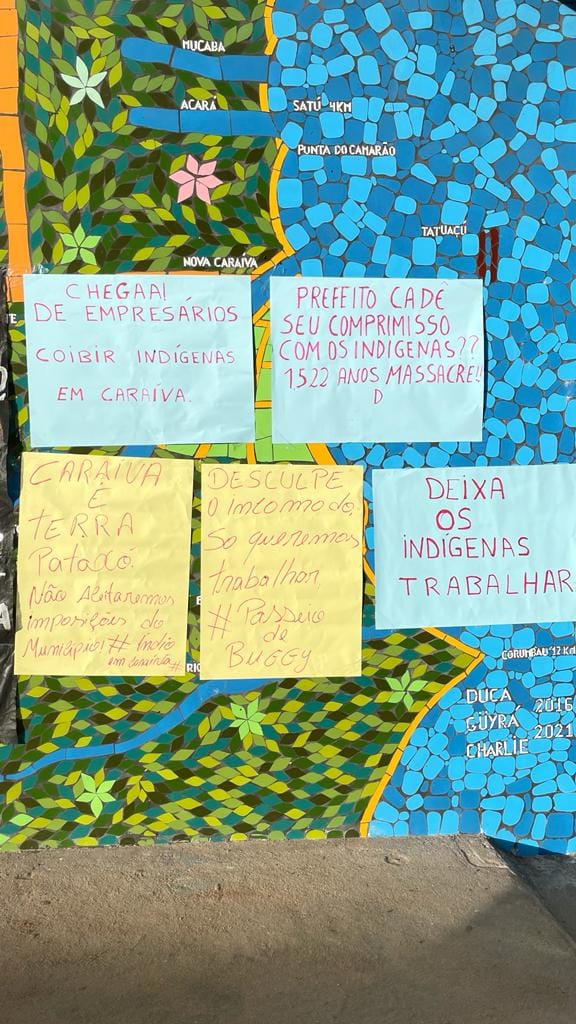 MUCABA
ACARÁ
SATÚ 4KM
PUNTA DO CAMARÃO
TATUAÇÚ
NOVA CARAÍVA
CHEGAA!
DE EMPRESÁRIOS
COIBIR INDÍGENAS
EM CARAÍVA.
PREFEITO CADÊ
SEU COMPRIMISSO
COM OS INDIGENAS??
1.522 ANOS MASSACRE!!
D
CARAIVA
É
TERRA
Pataxó.
Não Aceitaremos
imposições do
Município! # Índio
em caraiva #
DESCULPE
O incomodo.
So queremos
trabalhar,
# Passeio
de
BUGGY
DEIXA
OS
INDÍGENAS
TRABALHAR
CORUMBAU 12 Km
DUCA 2016
GÜYRÁ 2021
CHARLIE